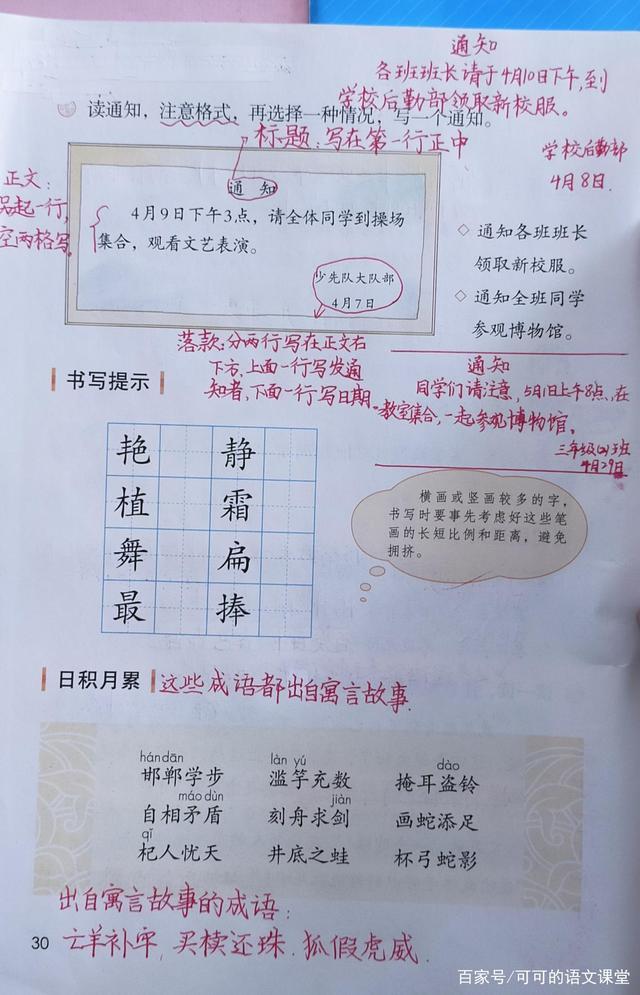 通知
各班班长请于4月10日下午,到
学校后勤部领取新校服。
学校后勤部
4月8日.
读通知,注意格式,再选择一种情况,写一个通知。
标题:写在第一行正中
正文:
另起一行,
空两格写.
通 知
4月9日下午3点,请全体同学到操场
集合,观看文艺表演。
少先队大队部
4月7日
◇ 通知各班班长
领取新校服。
◇ 通知全班同学
参观博物馆。
落款:分两行写在正文右
下方,上面一行写发通
知者,下面一行写日期.
通知
同学们请注意,5月1日上午8点,在
教室集合,一起参观博物馆。
三年级(2)班
4月29日
书写提示
艳 静
植 霜
舞 扁
最 捧
横画或竖画较多的字,
书写时要事先考虑好这些笔
画的长短比例和距离,避免
拥挤。
日积月累
这些成语都出自寓言故事.
hándān làn yú dào
邯郸学步 滥竽充数 掩耳盗铃
máo dùn jiàn
自相矛盾 刻舟求剑 画蛇添足
qǐ
杞人忧天 井底之蛙 杯弓蛇影
出自寓言故事的成语:
亡羊补牢,买椟还珠.狐假虎威.
30
百家号/可可的语文课堂